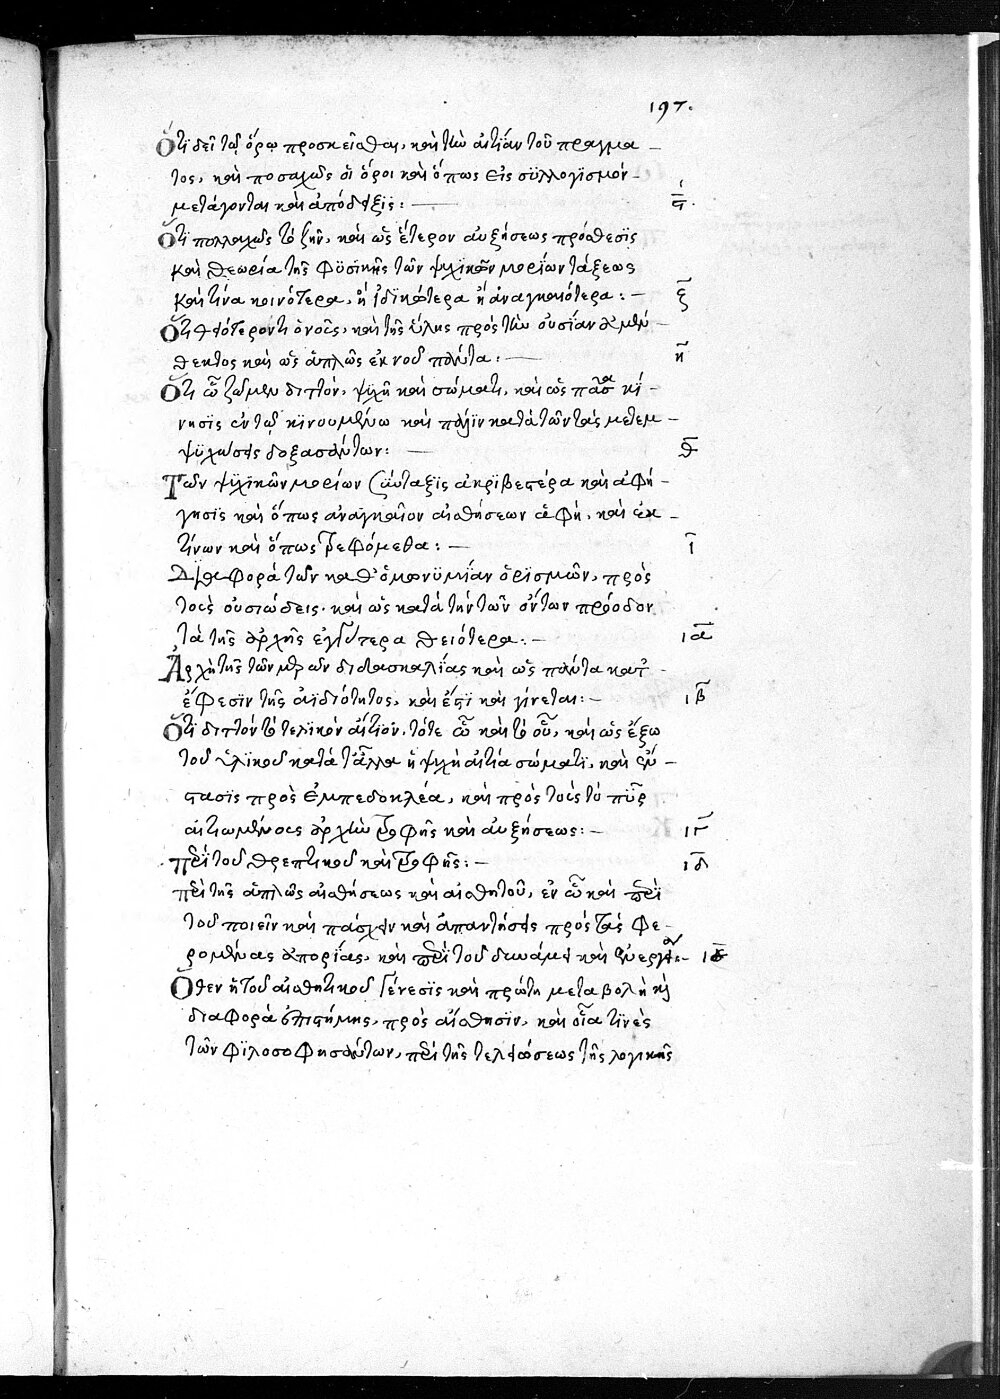 197.
Ὅτι δεῖ τῷ ὅρῳ προσκεῖσθαι, καὶ τὴν αἰτίαν τοῦ πραγμα –
τος, καὶ ποσαχῶς οἱ ὅροι καὶ ὅπως εἰς συλλογισμόν –
μετάγονται καὶ ἀπόδειξις: — ϛ.
Ὅτι πολλαχῶς τὸ ζῆν, καὶ ὡς ἕτερον αὐξήσεως πρόσθεσις
καὶ θεωρία τῆς φυσικῆς τῶν ψυχικῶν μορίων τάξεως
καὶ τίνα κοινότερα, ἢ ἰδικώτερα ἢ ἀναγκαιότερα: – ζ
Ὅτι θειότερόν τι ὁ νοῦς, καὶ τῆς ὕλης πρὸς τὴν οὐσίαν
δεκτος καὶ ὡς ἁπλῶς ἐκ νοῦ πάντα: — η
Ὅτι ᾧ ζῶμεν διττόν, ψυχῇ καὶ σώματι, καὶ ὡς πᾶσα κί –
νησις ἐν τῷ κινουμένω καὶ πάλιν κατὰ τῶν τὰς μετεμ –
ψυχώσεις δοξασάντων: — θ
Τῶν ψυχικῶν μορίων σύνταξις ἀκριβεστέρα καὶ ἀφή –
γησις καὶ ὅπως ἀναγκαῖον αἰσθήσεων ἁφή, καὶ ἐκ –
τίνων καὶ ὅπως τρεφόμεθα: – ι
Διαφορὰ τῶν καθ' ὁμωνυμίαν ὁρισμῶν, πρὸς
τοὺς οὐσιώδεις, καὶ ὡς κατὰ τὴν τῶν ὄντων πρόοδον
τὰ τῆς ἀρχῆς ἐγγύτερα θειότερα: – ια
Ἀρχὴ τῆς τῶν μερῶν διδασκαλίας καὶ ὡς πάντα κατ' –
ἔφεσιν τῆς ἀϊδιότητος, καὶ ἔστι καὶ γίνεται: – ιβ
Ὅτι διττὸν τὸ τελικὸν αἴτιον, τότε ᾧ καὶ τὸ οὗ, καὶ ὡς ἔξω
τοῦ ὑλικοῦ κατὰ τἆλλα ἡ ψυχὴ αἰτία σώματι, καὶ ἔν –
στασις πρὸς Ἐμπεδοκλέα, καὶ πρὸς τοὺς τὸ πῦρ
αἰτιωμένους ἀρχὴν τροφῆς καὶ αὐξήσεως: – ιγ
περὶ τοῦ θρεπτικοῦ καὶ τροφῆς: – ιδ
περὶ τῆς ἁπλῶς αἰσθήσεως καὶ αἰσθητοῦ, ἐν ᾧ καὶ περὶ
τοῦ ποιεῖν καὶ πάσχειν καὶ ἀπαντήσεις πρὸς τὰς φε –
ρομένας ἀπορίας, καὶ περὶ τοῦ δυνάμει καὶ ἐνεργείᾳ: – ιε
Ὅθεν ἡ τοῦ αἰσθητικοῦ γένεσις καὶ πρώτη μεταβολὴ καὶ
διαφορὰ ἐπιστήμης, πρὸς αἴσθησιν, καὶ οἷα τινὲς
τῶν φιλοσοφησάντων, περὶ τῆς τελειώσεως τῆς λογικῆς